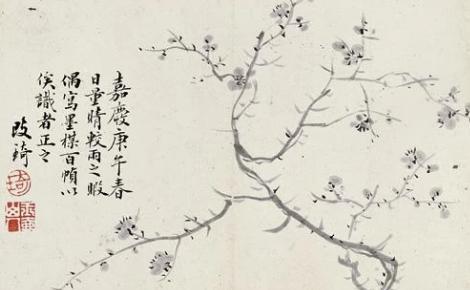 嘉慶庚午春
日量晴較雨之暇
偶寫墨楳百幀以
俟識者正之
改琦